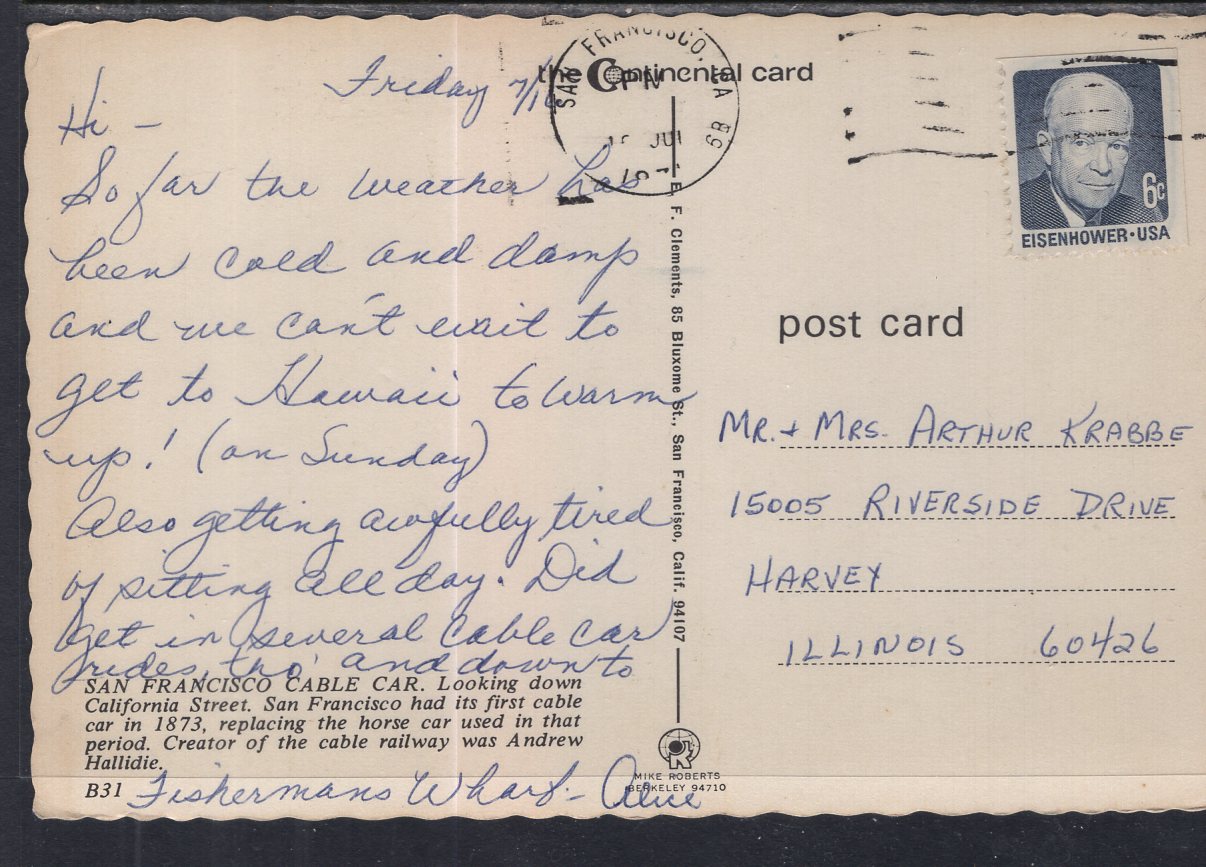 the Continental card
SAN FRANCISCO, CA
PM
JUL
Friday
Hi –
So far the weather has
been cold and damp
and we can't wait to
get to Hawaii to warm
up! (on Sunday)
Also getting awfully tired
of sitting all day. Did
get in several cable car
rides, tho' and down to
Fishermans Wharf – Alice
SAN FRANCISCO CABLE CAR. Looking down
California Street. San Francisco had its first cable
car in 1873, replacing the horse car used in that
period. Creator of the cable railway was Andrew
Hallidie.
B31
E. F. Clements, 85 Bluxome St., San Francisco, Calif. 94107
MIKE ROBERTS
BERKELEY 94710
6c
EISENHOWER·USA
post card
MR. + MRS. ARTHUR KRABBE
15005 RIVERSIDE DRIVE
HARVEY
ILLINOIS 60426